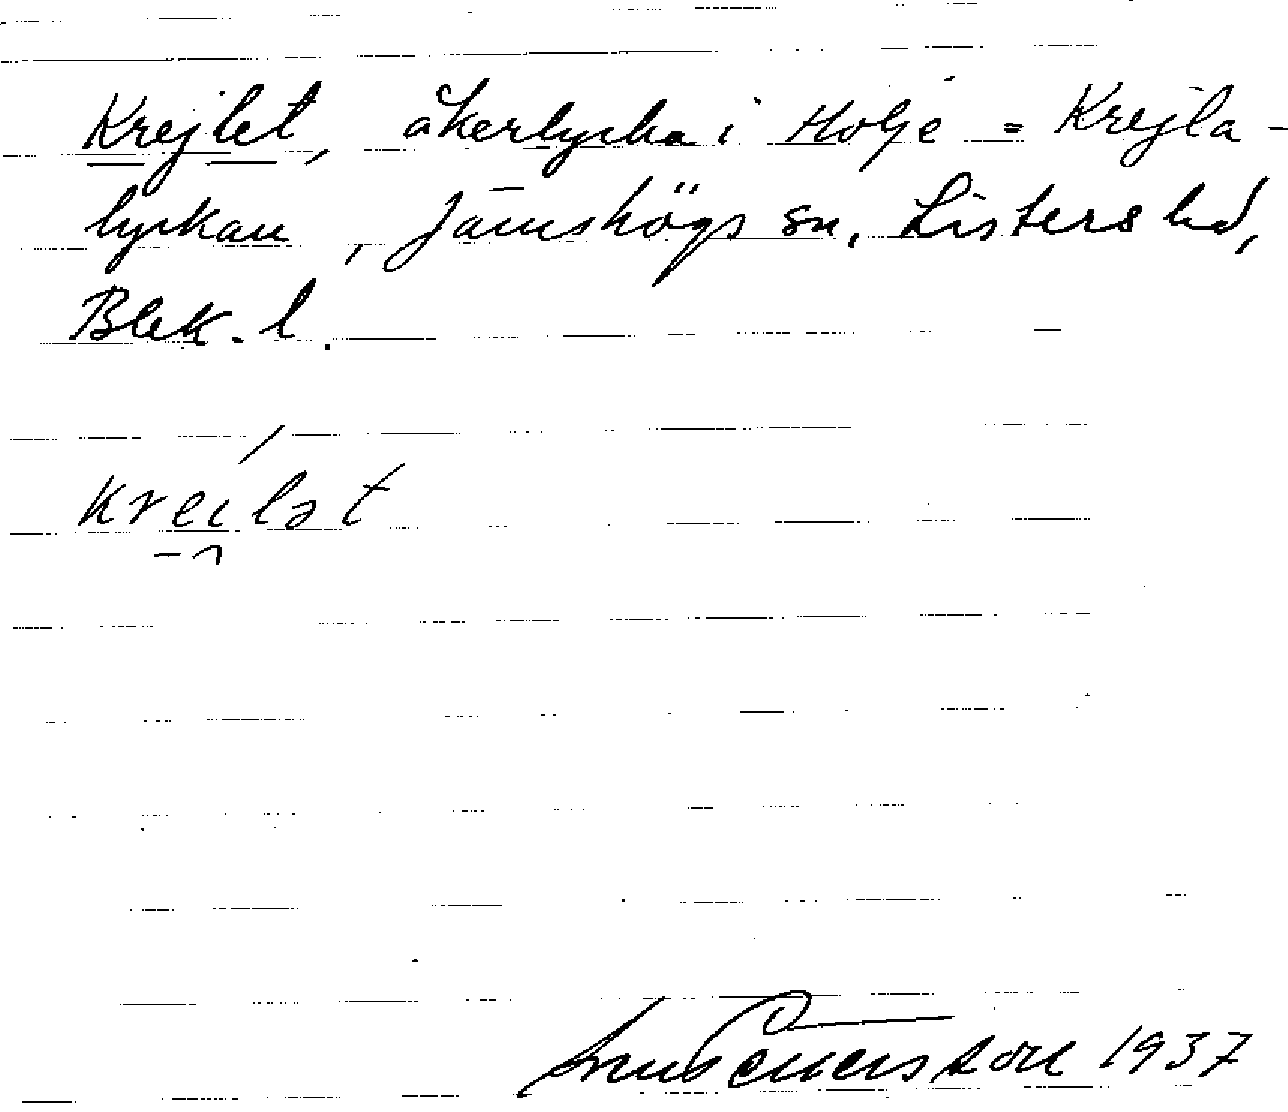 Krejlet, åkerlycka i Holje = Krejla-
lyckan, Jämshögs sn, Listers hd,
Blek. l.
kreilət
1937